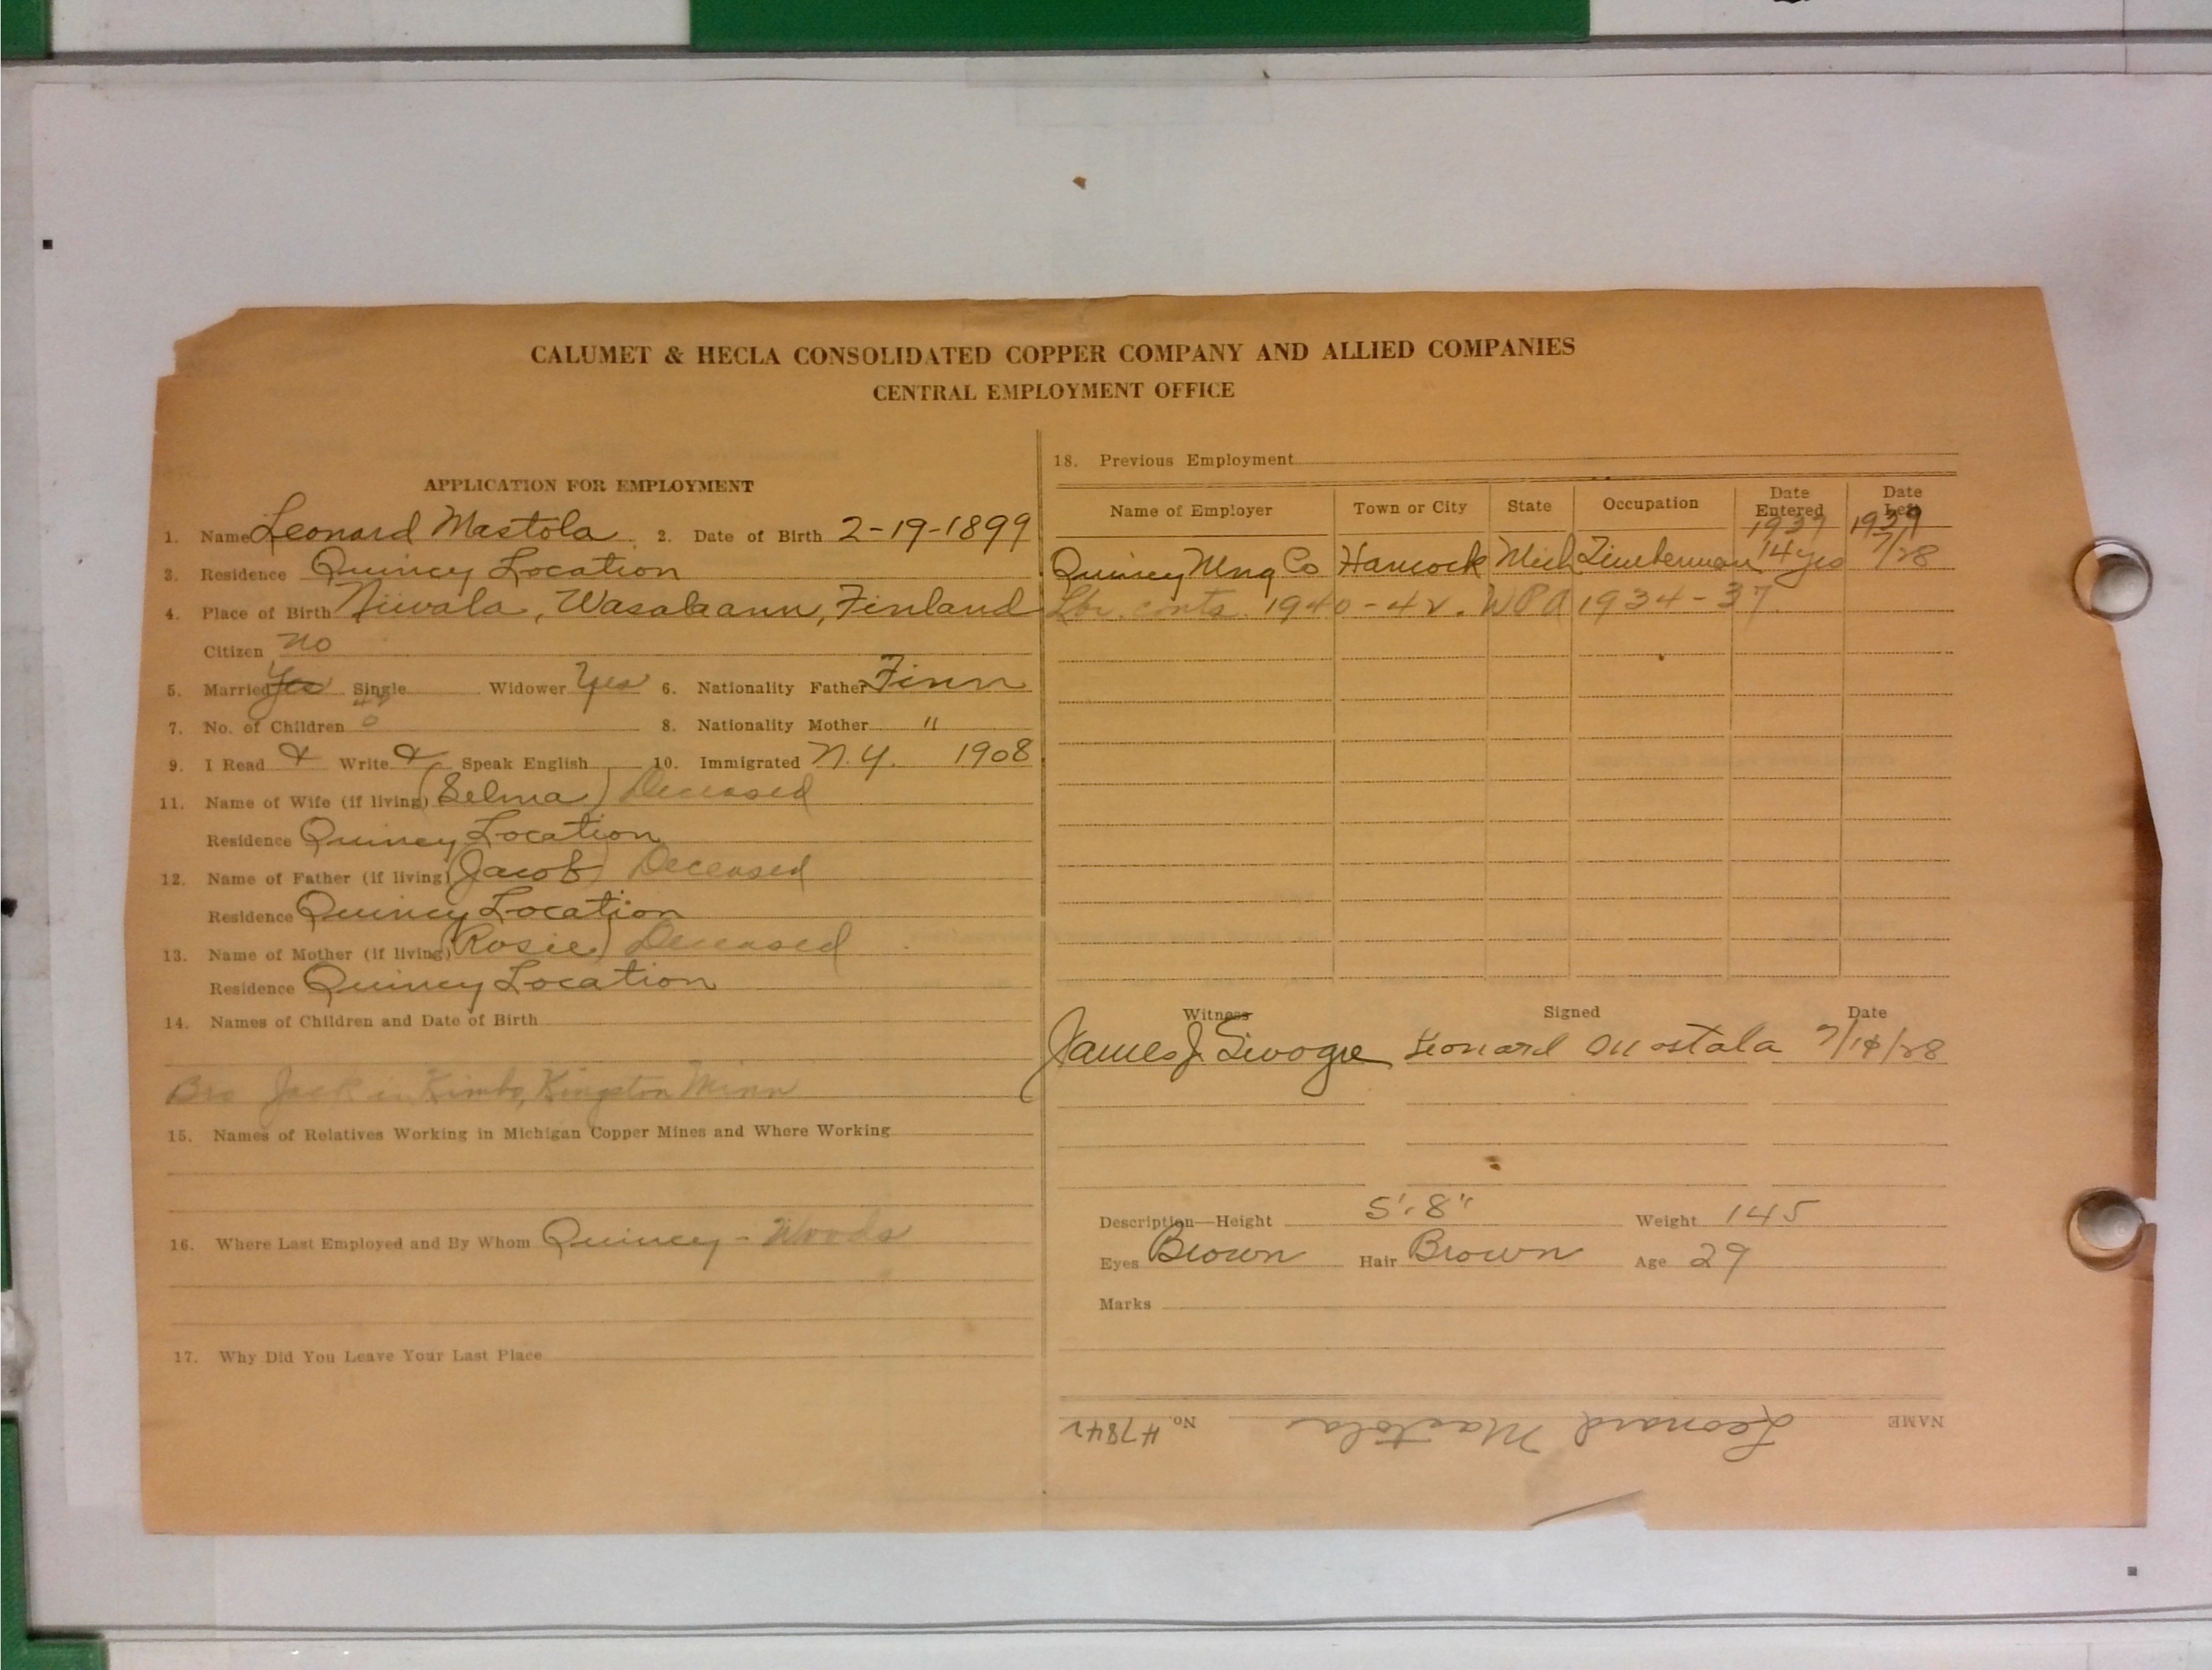 CALUMET & HECLA CONSOLIDATED COPPER COMPANY AND ALLIED COMPANIES
CENTRAL EMPLOYMENT OFFICE
APPLICATION FOR EMPLOYMENT
1. Name Leonard Mastola 2. Date of Birth 2-19-1899
3. Residence Quincy Location
4. Place of Birth Niwala, Wasalaann, Finland
Citizen no
5. Married Yes Single Widower Yes 6. Nationality Father Finn
7. No. of Children 0 8. Nationality Mother "
9. I Read & Write & Speak English 10. Immigrated N.Y. 1908
11. Name of Wife (if living) (Selma) Deceased
Residence Quincy Location
12. Name of Father (if living) (Jacob) Deceased
Residence Quincy Location
13. Name of Mother (if living) (Rosie) Deceased
Residence Quincy Location
14. Names of Children and Date of Birth
Bro Jack in Kimbo, Kingston Minn
15. Names of Relatives Working in Michigan Copper Mines and Where Working
16. Where Last Employed and By Whom Quincy - Woods
17. Why Did You Leave Your Last Place
18. Previous Employment
Name of Employer Town or City State Occupation Date Entered Date Left
1937 1939
Quincy Mng Co Hancock Mich Timberman 14 yrs 7/28
Lbr. conts. 1940-42. WPA 1934-37.
Witness Signed Date
James J. Leonard Mastala 7/18/28
Description—Height 5'.8" Weight 145
Eyes Brown Hair Brown Age 29
Marks
NAME Leonard Mastola No. 47842